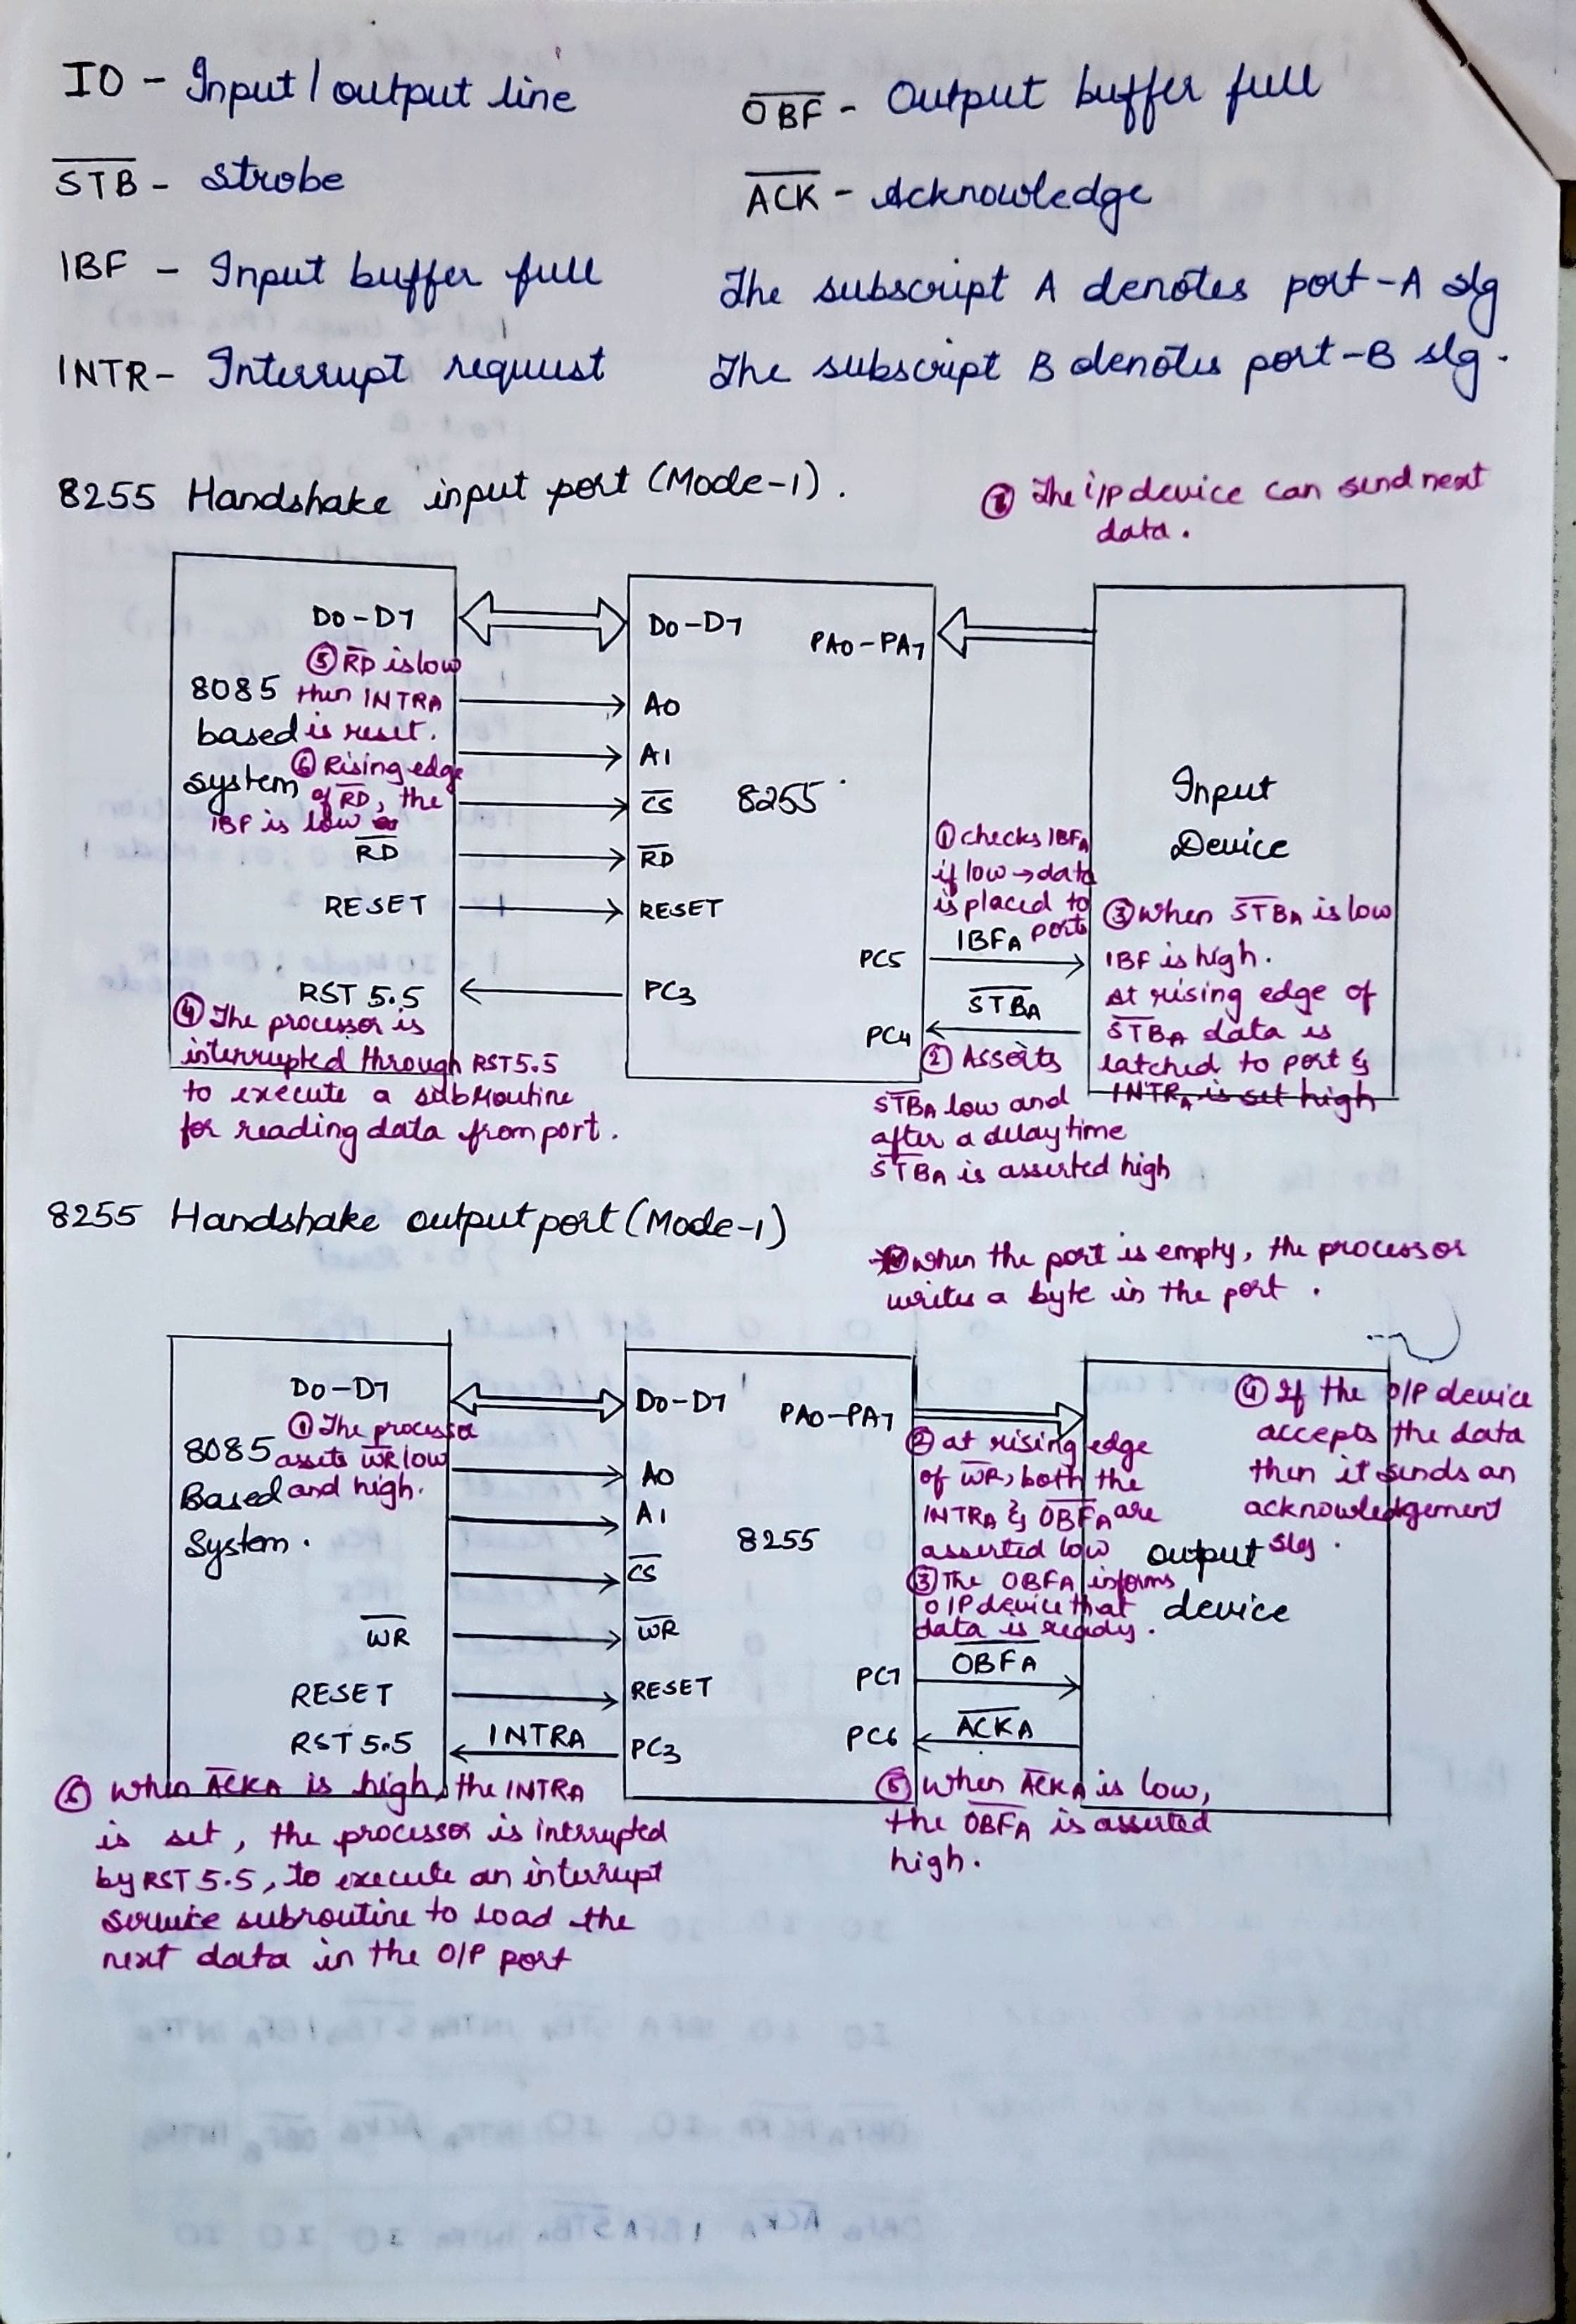 IO - Input / output line
STB - Strobe
IBF - Input buffer full
INTR - Interrupt request
OBF - Output buffer full
ACK - Acknowledge
The subscript A denotes port-A slg
The subscript B denotes port-B slg.
8255 Handshake input port (Mode-1).
The i/p device can send next
data.
D0-D7
⑤ RD is low
then INTRA
is reset.
8085
based
system
⑥ Rising edge
of RD, the
IBF is low
RD
RESET
RST 5.5
④ The processor is
interrupted through RST 5.5
to execute a subroutine
for reading data from port.
D0-D7
PA0-PA7
A0
A1
CS
8255
RD
RESET
PC5
PC3
PC4
① checks IBFA
if low → data
is placed to
port
IBFA
STBA
② Asserts
STBA low and
after a delay time
STBA is asserted high
Input
Device
③ when STBA is low
IBF is high.
At rising edge of
STBA data is
latched to port &
INTRA is set high
8255 Handshake output port (Mode-1)
when the port is empty, the processor
writes a byte in the port.
D0-D7
① The processor
assets WR low
and high.
8085
Based
System.
WR
RESET
RST 5.5
INTRA
D0-D7
PA0-PA7
A0
A1
8255
CS
WR
RESET
PC7
PC6
PC3
② at rising edge
of WR, both the
INTRA & OBFA are
asserted low
③ The OBFA informs
O/P device that
data is ready.
OBFA
ACKA
④ If the O/P device
accepts the data
then it sends an
acknowledgement
slg.
output
device
⑤ When ACKA is low,
the OBFA is asserted
high.
⑥ When ACKA is high, the INTRA
is set, the processor is intrrupted
by RST 5.5, to execute an interrupt
service subroutine to load the
next data in the O/P port